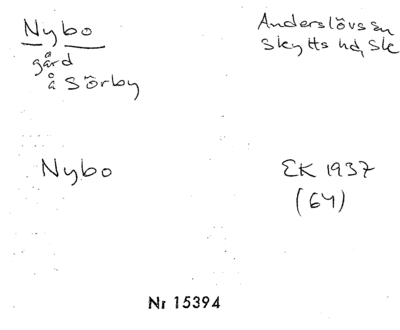 Nybo
gård
å Sörby
Anderslövs sn
Skytts hd, Sk
Nybo
EK 1937
(64)
Nr 15394